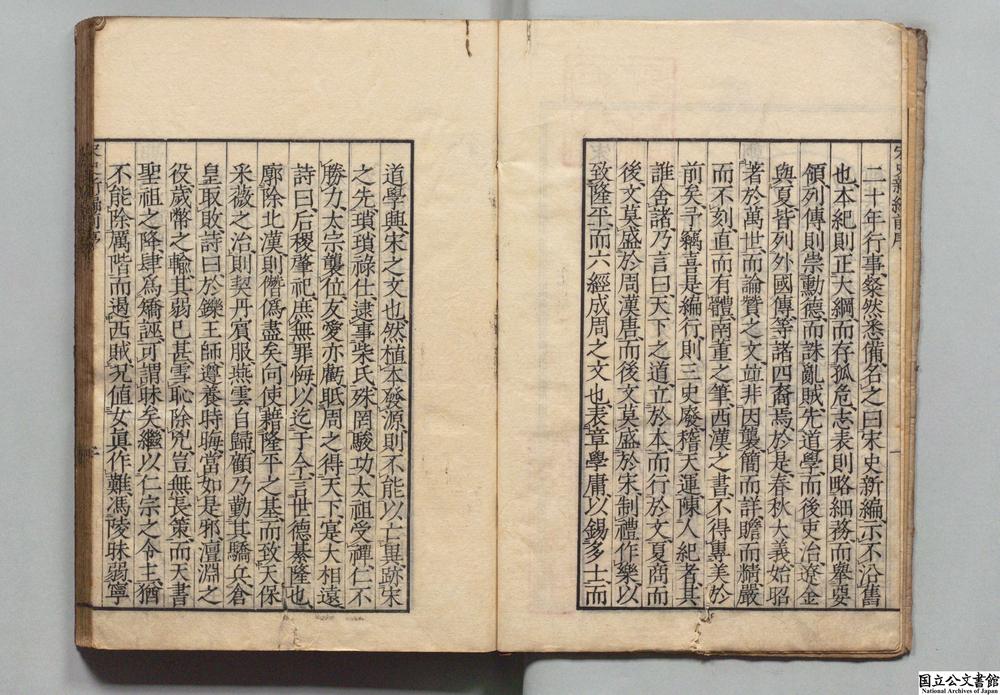 二十年行事粲然悉備名之曰宋史新編示不沿舊
也本紀則正大綱而存孤危志表則略細務而舉要
領列傳則崇勳德而誅亂賊先道學而後吏治遼金
與夏皆列外國傳等諸四裔焉於是春秋大義始昭
著於萬世而論贊之文並非因襲簡而詳贍而精嚴
而不刻直而有體南董之筆西漢之書不得專美於
前矣予竊喜是編行則三史廢稽天運陳人紀者其
誰舍諸乃言曰天下之道立於本而行於文夏商而
後文莫盛於周漢唐而後文莫盛於宋制禮作樂以
致隆平而六經成周之文也表章學庸以錫多士而
道學興宋之文也然植本發源則不能以亡異跡宋
之先瑣瑣祿仕逮事柴氏殊罔駿功太祖受禪仁不
勝力太宗襲位友愛亦虧眂周之得天下寔大相遠
詩曰后稷肇祀庶無罪悔以迄于今言世德綦隆也
廓除北漢則僭僞盡矣向使藉隆平之基而致天保
采薇之治則契丹賓服燕雲自歸顧乃勤其驕兵倉
皇取敗詩曰於鑠王師遵養時晦當如是邪澶淵之
役歲幣之輸其弱已甚雪恥除兇豈無長策而天書
聖祖之降肆為矯誣可謂昧矣繼以仁宗之令主猶
不能除厲階而遏西賊况值女真作難馮陵昧弱寧
国立公文書館
National Archives of Japan